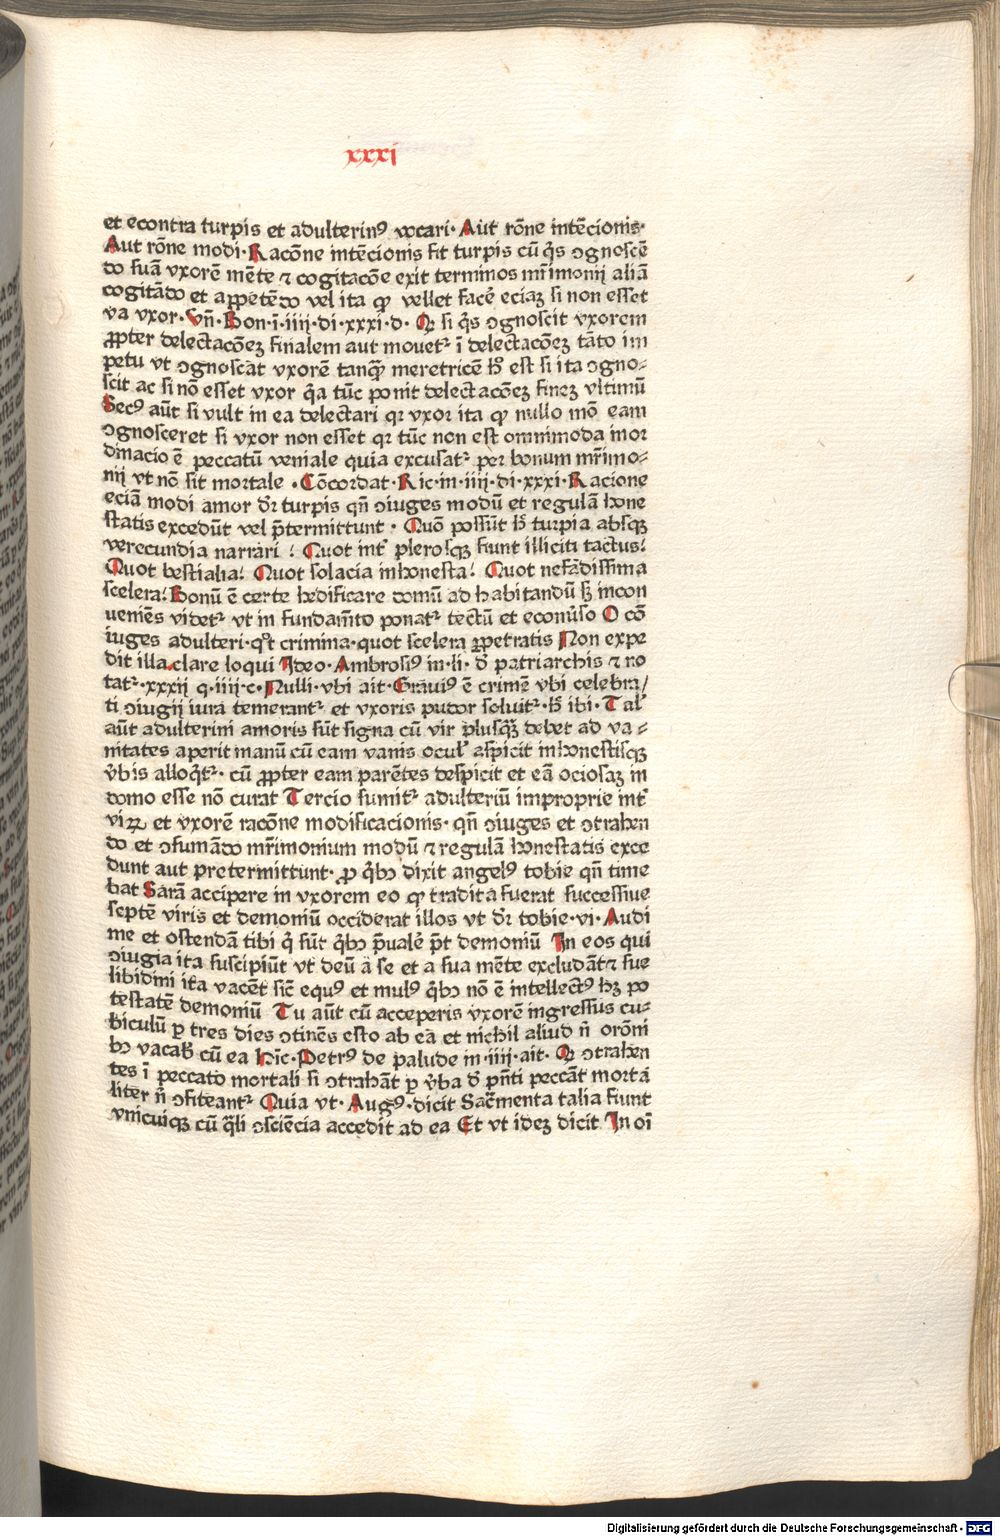 xxxi
et econtra turpis et adulterinꝰ vocari· Aut rōne intēcionis·
Aut rōne modi· Racōne intēcionis fit turpis cū q̇s ꝯgnoscē
do suā vxorē mēte ⁊ cogitacōe exit terminos mr̄imonij aliā
cogitādo et appetēdo vel ita ꝙ vellet facē eciaꝫ si non esset
ua vxor· Vn̄· Bon·ī·iiij·di·xxxi·d· Ꝙ si q̇s ꝯgnoscit vxorem
ꝓpter delectacōeꝫ finalem aut mouetᷣ ī delectacōeꝫ tāto im
petu vt ꝯgnoscat vxorē tanqꝫ̄ meretricē hͦ est si ita ꝯgno⸗
scit ac si nō esset vxor q̇a tūc ponit delectacōeꝫ fineꝫ vltimū
Secꝰ aūt si vult in ea delectari qꝛ vxor ita ꝙ nullo mō eam
ꝯgnosceret si vxor non esset qꝛ tūc non est omnimoda inor
dinacio ē peccatū veniale quia excusatᷣ per bonum mr̄imo⸗
nij vt nō sit mortale · Cōcordat· Ric·in·iiij·di·xxxi· Racione
eciā modi amor dr̄ turpis qn̄ ꝯiuges modū et regulā hone
statis excedūt vel p̄termittunt · Quō possūt hͦ turpia absqꝫ
verecundia narrari ! Quot int̄ plerosqꝫ fiunt illiciti tactus!
Quot bestialia! Quot solacia inhonesta! Quot nefādissima
scelera! Bonū ē certe hedificare domū ad habitandū sꝫ incon
ueniēs videtᷣ vt in fundamīto ponatᷣ tectū et econuͥso O cō
iuges adulteri·qͦt crimina·quot scelera ꝑpetratis Non expe
dit illa clare loqui Ideo· Ambrosiꝰ in·li· dͤ patriarchis ⁊ no
tatᷣ·xxxij q·iiij·c· Nulli·vbi ait· Grauiꝰ ē crimē vbi celebra/
ti ꝯiugij iura temerantᷣ et vxoris pudor soluitᷣ· hͦ ibi· Tal̄
aūt adulterini amoris sūt signa cū vir plusqꝫ̄ debet ad va⸗
nitates aperit manū cū eam vanis ocul̄ aspicit inhonestisqꝫ
v̓bis alloq̇tᷣ· cū ꝓpter eam parētes despicit et eā ociosaꝫ in
domo esse nō curat Tercio sumitᷣ adulteriū improprie int̄
viꝝ et vxorē racōne modificacionis· qn̄ ꝯiuges et ꝯtrahen
do et ꝯsumādo mr̄imonium modū ⁊ regulā honestatis exce
dunt aut pretermittunt· ꝓ q̇bꝯ dixit angelꝰ tobie qn̄ time
bat Sarā accipere in vxorem eo ꝙ tradita fuerat successiue
septē viris et demoniū occiderat illos vt dr̄ tobie·vi· Audi
me et ostendā tibi q̇ sūt q̇bꝯ p̄ualē p̄t demoniū In eos qui
ꝯiugia ita suscipiūt vt deū a se et a sua mēte excludāt ⁊ sue
libidini ita vacēt sic̄ equꝰ et mulꝰ q̇bꝯ nō ē intellectꝰ hꝫ po
testatē demoniū Tu aūt cū acceperis vxorē ingressus cu⸗
biculū ꝑ tres dies ꝯtinēs esto ab ea et nichil aliud n̄ orōni
bꝯ vacab̄ cū ea hīc· Petrꝰ de palude in·iiij·ait· Ꝙ ꝯtrahen
tes ī peccato mortali si ꝯtrahāt ꝑ v̓ba dͤ p̄nti peccāt morta
liter n̄ ꝯfiteantᷣ Quia vt· Augꝰ·dicit Sac̄menta talia fiunt
vnicuiqꝫ cū q̄li ꝯsciēcia accedit ad ea Et vt ideꝫ dicit In oī
Digitalisierung gefördert durch die Deutsche Forschungsgemeinschaft - DFG